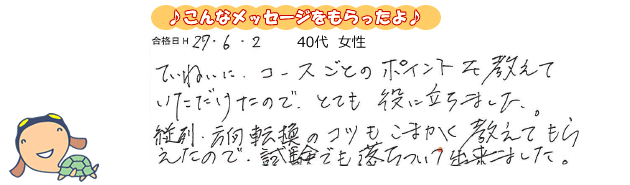 ♪こんなメッセージをもらったよ♪
合格日 H 27・6・2　40代 女性
ていねいに、コースごとのポイントを教えて
いただけたので、とても役に立ちました。
縦列・方向転換のコツもこまかく教えてもら
えたので、試験でも落ちついて出来ました。